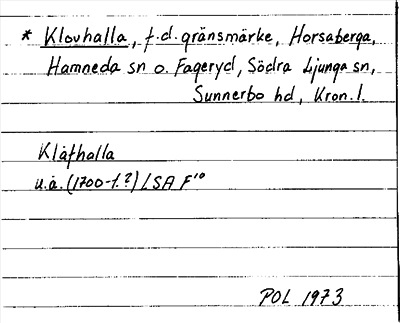 * Klovhalla, f.d. gränsmärke, Horsaberga,
Hamneda sn o. Fageryd, Södra Ljunga sn,
Sunnerbo hd, Kron.l.
Klåfhalla
u.å. (1700-t.?) LSA F¹⁰
POL 1973